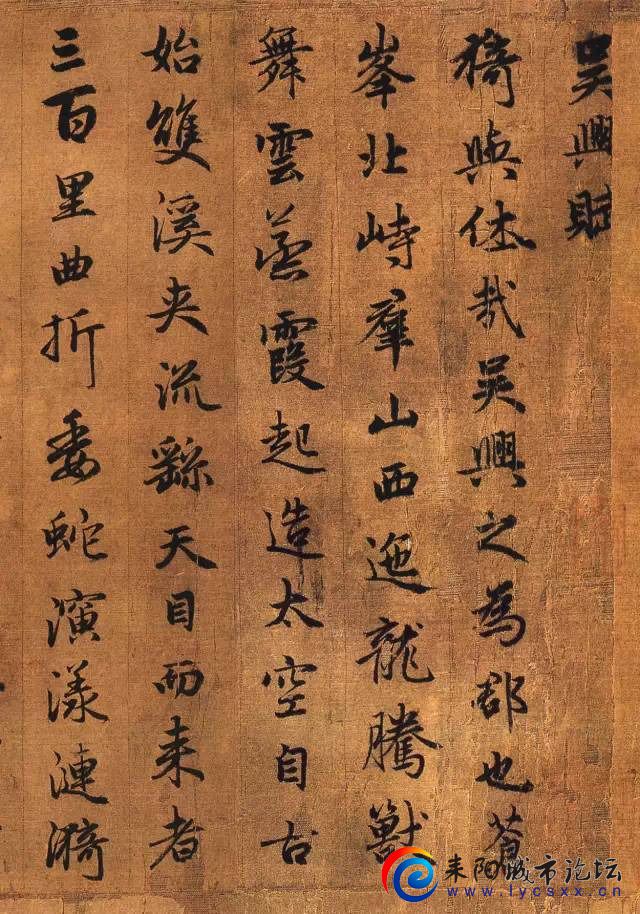 吳興賦
猗與休哉吳興之為郡也蒼
峯北峙羣山西迤龍騰獸
舞雲蒸霞起造太空自古
始雙溪夾流繇天目而来者
三百里曲折委蛇演漾漣漪
耒阳城市论坛
www.lycsxx.cn